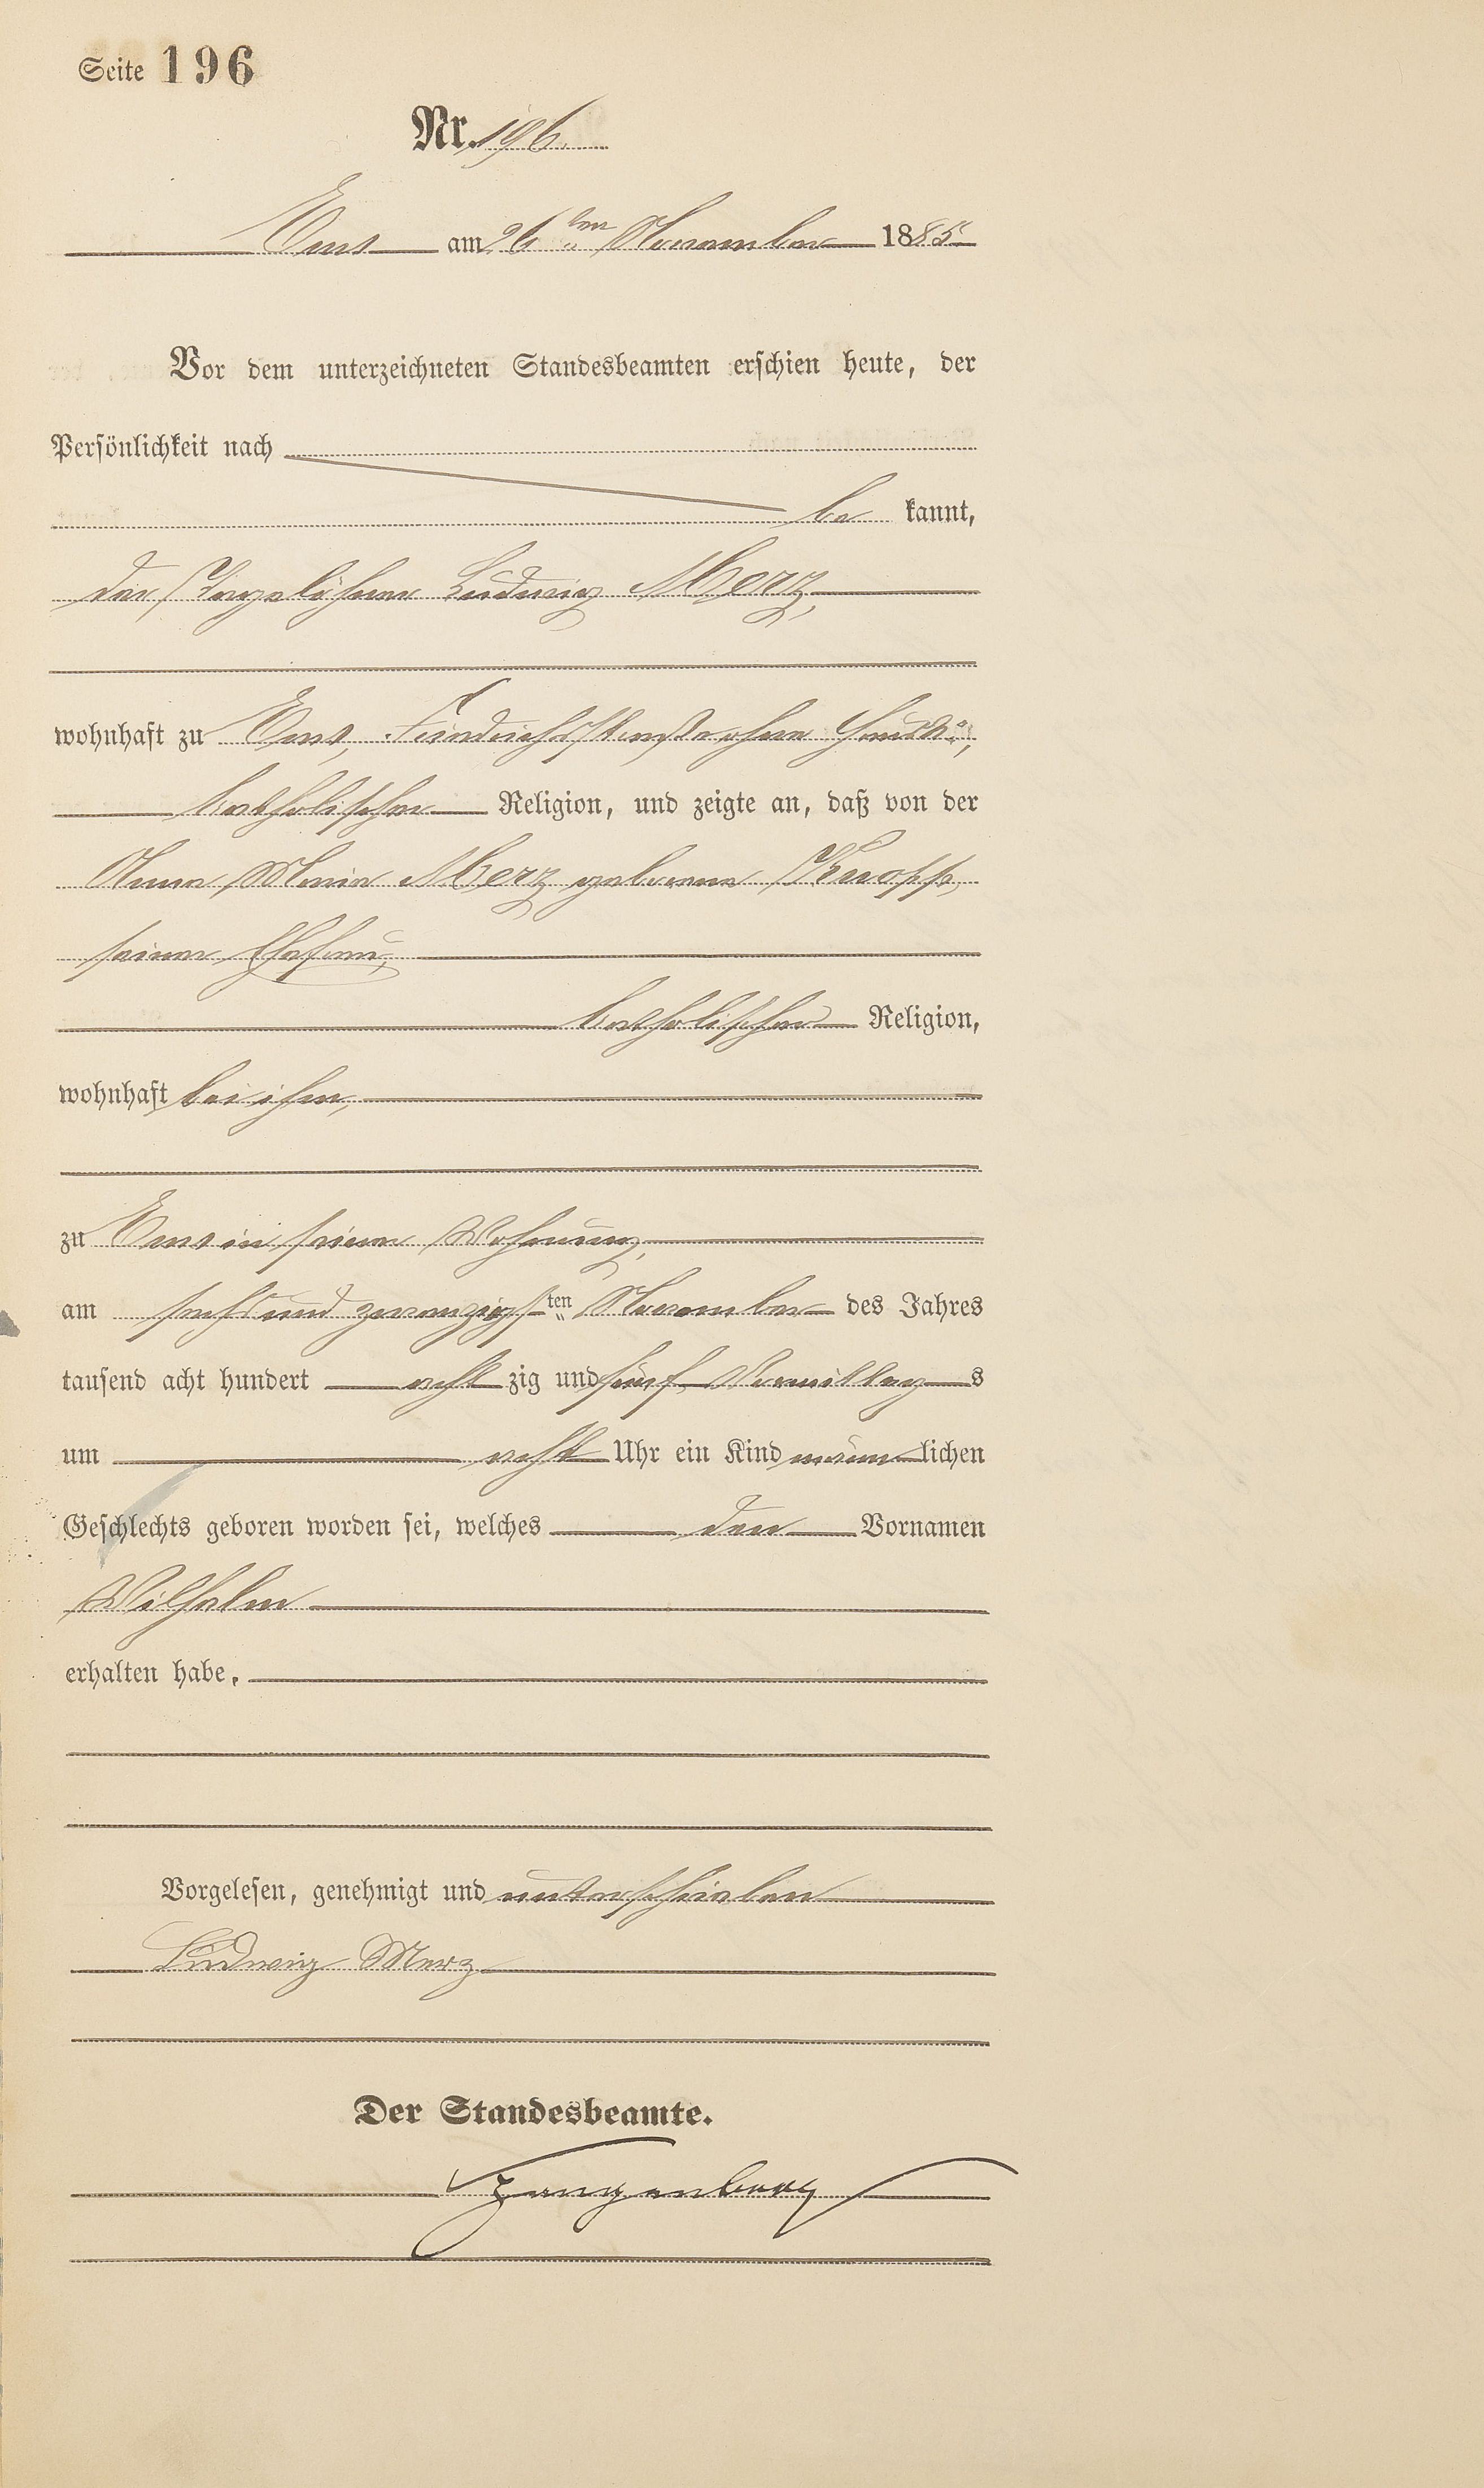 Seite 196
Nr. 196.
Ems am 26ten November 1885
Vor dem unterzeichneten Standesbeamten erschien heute, der
Persönlichkeit nach
be kannt,
der Tagelöhner Ludwig Merz,
wohnhaft zu Ems,
katholischer Religion, und zeigte an, daß von der
Anna Maria Merz geborene Knopp,
seiner Ehefrau,
katholischer Religion,
wohnhaft bei ihm,
zu Ems in seiner Wohnung,
am sechs und zwanzigsten November des Jahres
tausend acht hundert acht zig und fünf Vormittag s
um acht Uhr ein Kind männ lichen
Geschlechts geboren worden sei, welches den Vornamen
Wilhelm
erhalten habe.
Vorgelesen, genehmigt und unterschrieben
Ludwig Merz
Der Standesbeamte.